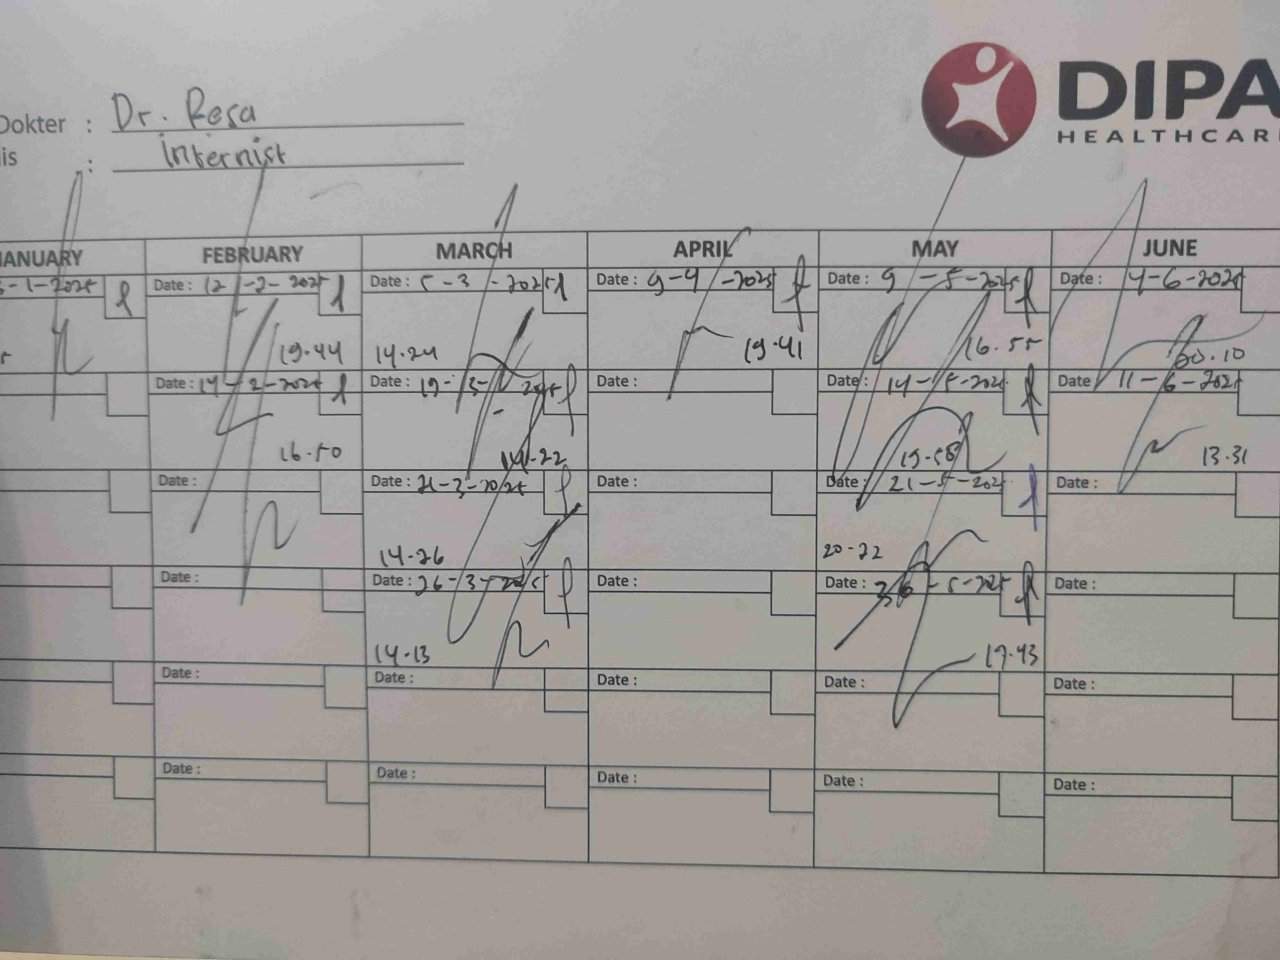 DIPA
HEALTHCAR
Dokter : Dr. Resa
is : Internist
ANUARY FEBRUARY MARCH APRIL MAY JUNE
-1-2025 Date : 12-2-2025 Date : 5-3-2025 Date : 9-4-2025 Date : 9-5-2025 Date : 4-6-2025
19.44 14.24 19.41 16.55 20.10
Date : 14-2-2025 Date : 19-3-2025 Date : Date : 14-5-2025 Date 11-6-2025
16.50 14.22 19.58 13.31
Date : Date : 21-3-2025 Date : Date : 21-5-2025 Date :
14.26 20-22
Date : Date : 26-3-2025 Date : Date : -5-2025 Date :
14-13 17.43
Date : Date : Date : Date : Date :
Date : Date : Date : Date : Date :